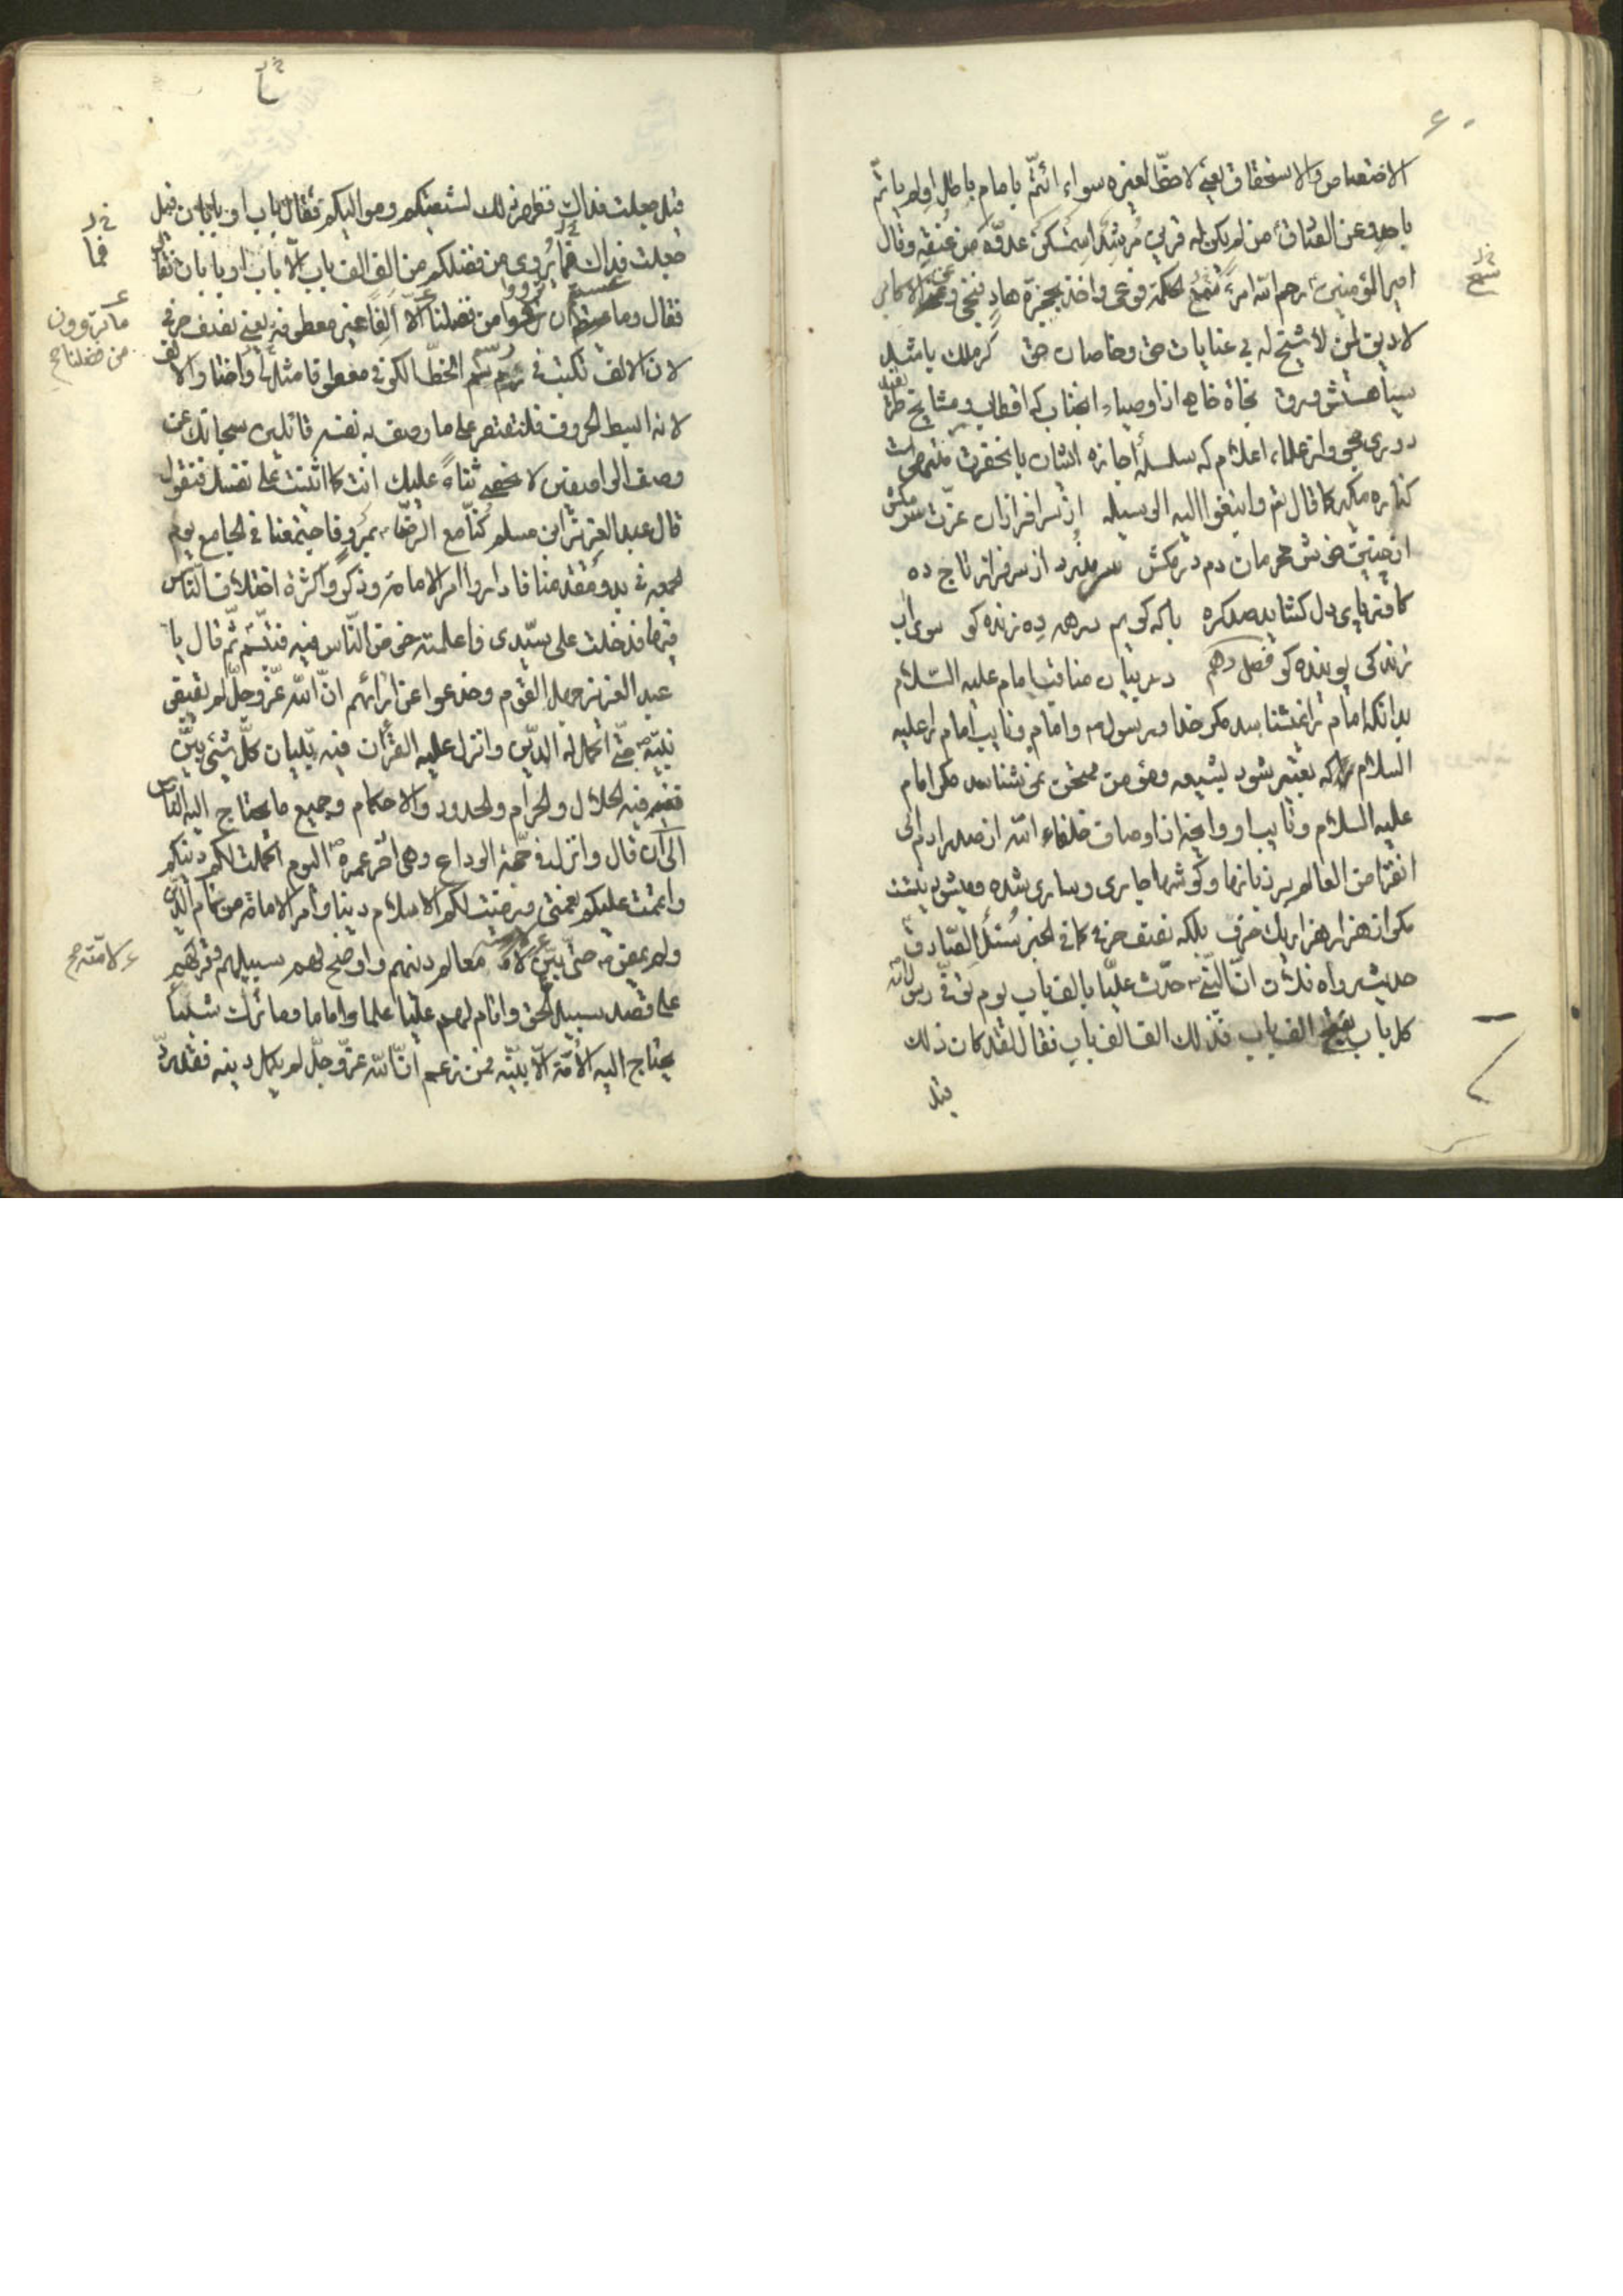 الاختصاص والاستحقاق یعنی لا حظّا لغیره سواء ائتمّ بامام باطل اولم یاتمّ
باحد وعن الصّادق من لم یکن له قرین مُرشد استمکن عدوّه من عُنقه وقال
امیرالمؤمنین رحم الله امرءً سمع الحکمة فوعی واخذ بحجزة هادٍ فنجی الاکابر
لا دین لمن لا شیخ له بی عنایات حق وخاصان حق گر ملک باشد
سیاهستش ورق نجاة خاصه از اوصیاء انجناب که اقطاب ومشایخ
واز علماء اعلام که سلسلهٔ اجازه ایشان بانحضرت
کناره مگیر کما قال تم وابتغوا الیه الوسیله از سرافرازان عزّت سر مکش
از چنین خوش محرمان دم در مکش از سرفراز تاج ده
کو ز پای دل گشاید صد گره باکه گویم در همه ده زنده کو سوی آب
زندگی پوینده کو فصل دهم در بیان مناقب امام علیه السّلام
بدانکه امام را نمیشناسد مگر خدا ورسول وامام ونایب امام را علیه
السلام که تعبیر بشود بشیعه ومؤمن ممتحن نمیشناسد مگر امام
علیه السلام ونایب او وانچه از اوصاف خلفاء الله از صدر ادم الی
انقراض العالم بر زبانها وگوشها جاری وساری شده ومیشود نیست
مگر از هزار هزار یک حرف بلکه نصف حرف کما فی الخبر سُئل الصّادق
حدیث رواه فلان انّ النّبی حدّث علیّا بالف باب یوم توفّی رسول الله
کل باب یفتح الف باب فذلک الف الف باب فقال لقد کان ذلک
قیل
قیل جعلت فداک فظهر ذلک لشیعتکم وموالیکم فقال باب او بابان قیل
جعلت فداک فما یُروی من فضلکم من الف الف باب الّا باب او بابان
فقال وما عسیتم ان ترووا من فضلنا الّا اَلِفًا غیر معطوفة یعنی نصف حرف
لان الالف تکتب فی رسم الخطّ الکوفی معطوفا مثل واختار الالف
لانه ابسط الحروف فلنقتصر علی ما وصف به نفسه قائلین سبحانک عن
وصف الواصفین لا نحصی ثناءً علیک انت کما اثنیت علی نفسک فنقول
قال عبد العزیز ابن مسلم کُنّا مع الرضا بمرو فاجتمعنا فی الجامع یوم
الجمعه فی بدو مقدمنا فاداروا امر الامامة وذکروا کثرة اختلاف النّاس
فیها فدخلت علی سیّدی فاعلمته خوض النّاس فیه فتبسّم ثمّ قال یا
عبد العزیز جهل القوم وخدعوا عن ارائهم انّ الله عزّ وجلّ لم یقبض
نبیّه حتّی اکمل له الدّین وانزل علیه القرآن فیه تبیان کلّ شیئ بیّن
فیه الحلال والحرام والحدود والاحکام وجمیع ما یحتاج الیه النّاس
الی ان قال وانزل فی حجّة الوداع وهی اخر عمره الیوم اکملت لکم دینکم
واتممت علیکم نعمتی ورضیت لکم الاسلام دینا وامر الامامة من تمام الدّین
ولم یمض حتّی بیّن لامّته معالم دینهم واوضح لهم سبیلهم وترکهم
علی قصد سبیل الحق واقام لهم علیّا علما واماما وما ترک شیئا
یحتاج الیه الامّة الّا بیّنه فمن زعم انّ الله عزّ وجلّ لم یکمل دینه فقد ردّ
فما
ما تروون
من فضلنا
لامّته